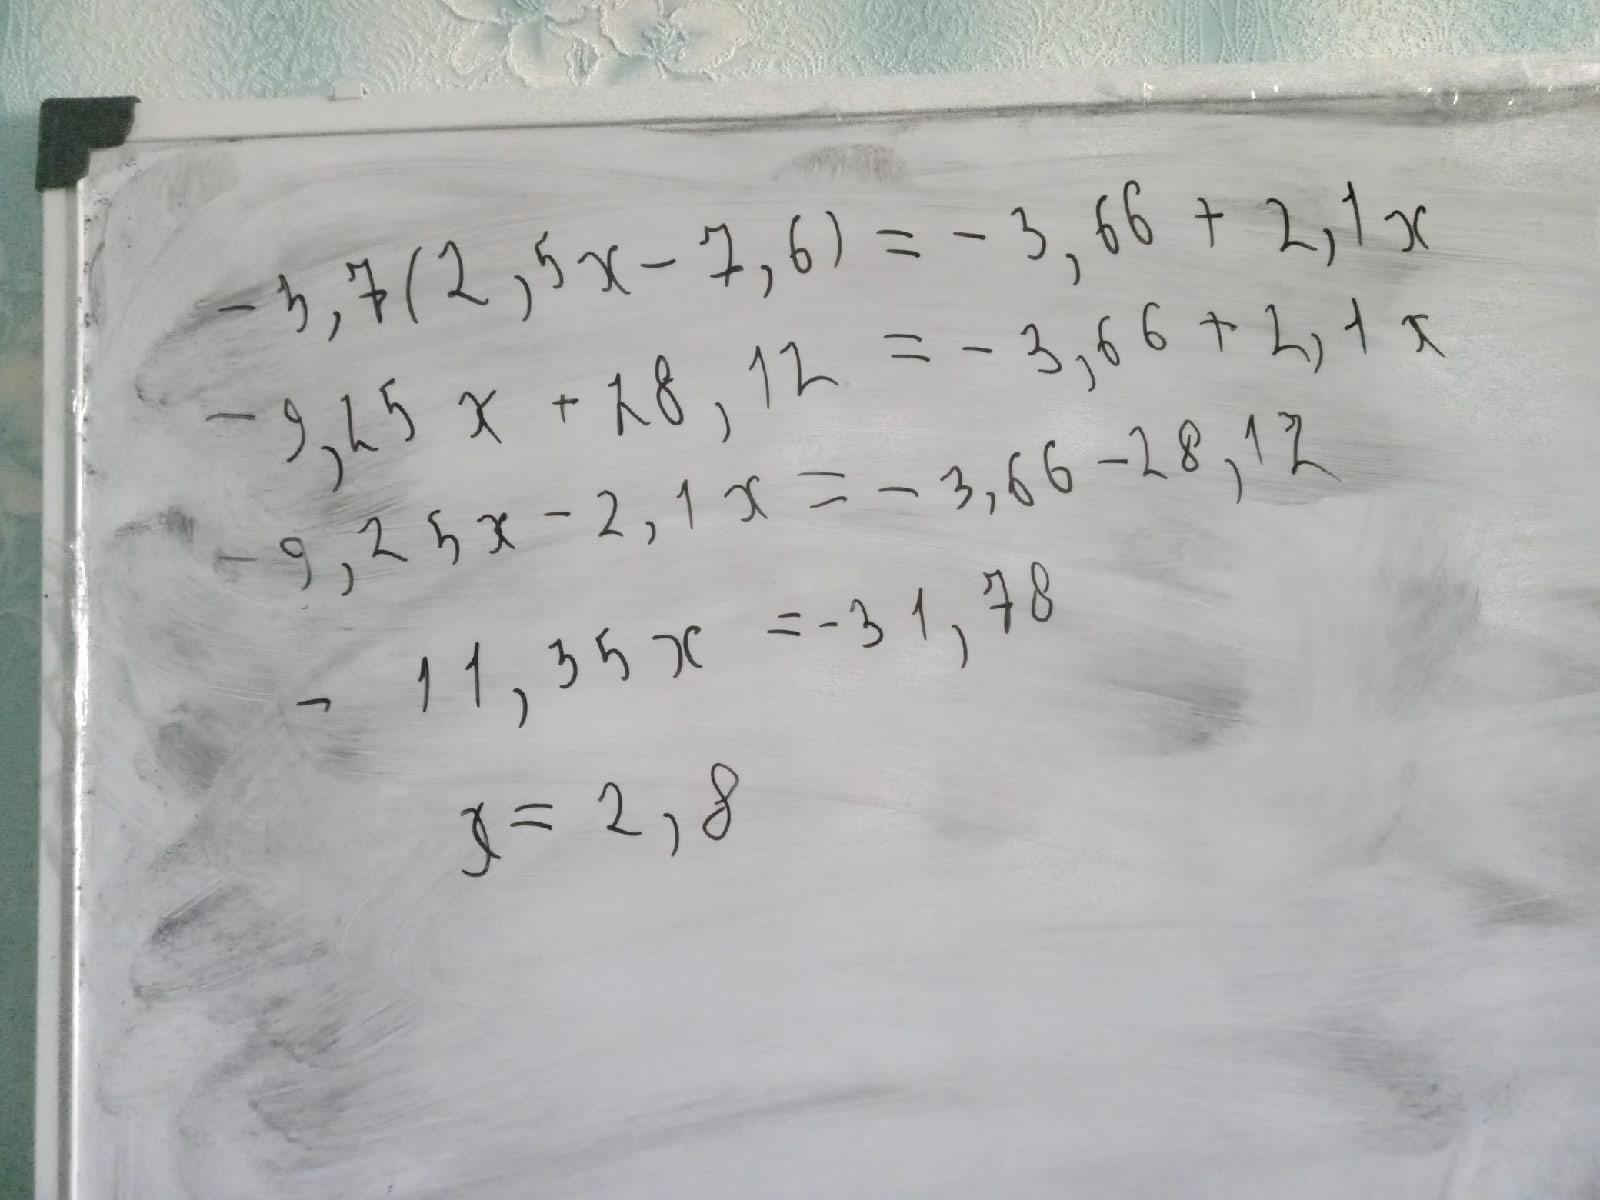 -3,7(2,5x-7,6)=-3,66+2,1x
-9,25x+28,12=-3,66+2,1x
-9,25x-2,1x=-3,66-28,12
-11,35x=-31,78
x=2,8